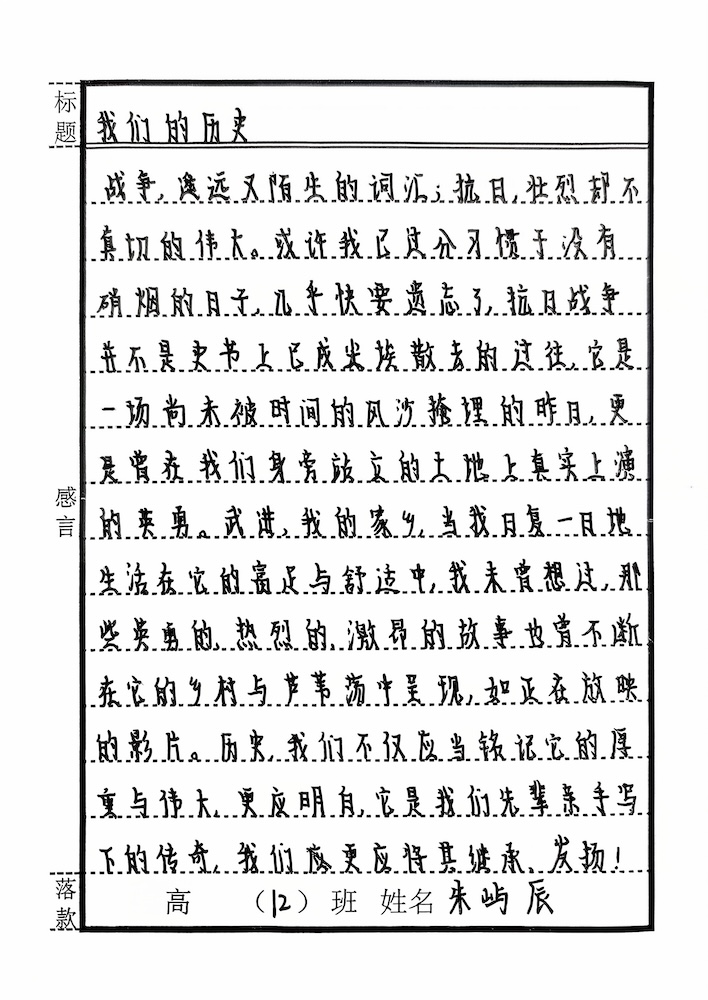 标题
我们的历史
战争,遥远又陌生的词汇;抗日,壮烈却不
真切的伟大。或许我已过分习惯于没有
硝烟的日子,几乎快要遗忘了,抗日战争
并不是史书上已成尘埃散去的过往,它是
一场尚未被时间的风沙掩埋的昨日,更
是曾在我们身旁站立的土地上真实上演
的英勇。武进,我的家乡,当我日复一日地
生活在它的富足与舒适中,我未曾想过,那
些英勇的,热烈的,激昂的故事也曾不断
在它的乡村与芦苇荡中呈现,如正在放映
的影片。历史,我们不仅应当铭记它的厚
重与伟大,更应明白,它是我们先辈亲手写
下的传奇,我们更应将其继承、发扬!
感言
落款
高 (12)班 姓名 朱屿辰